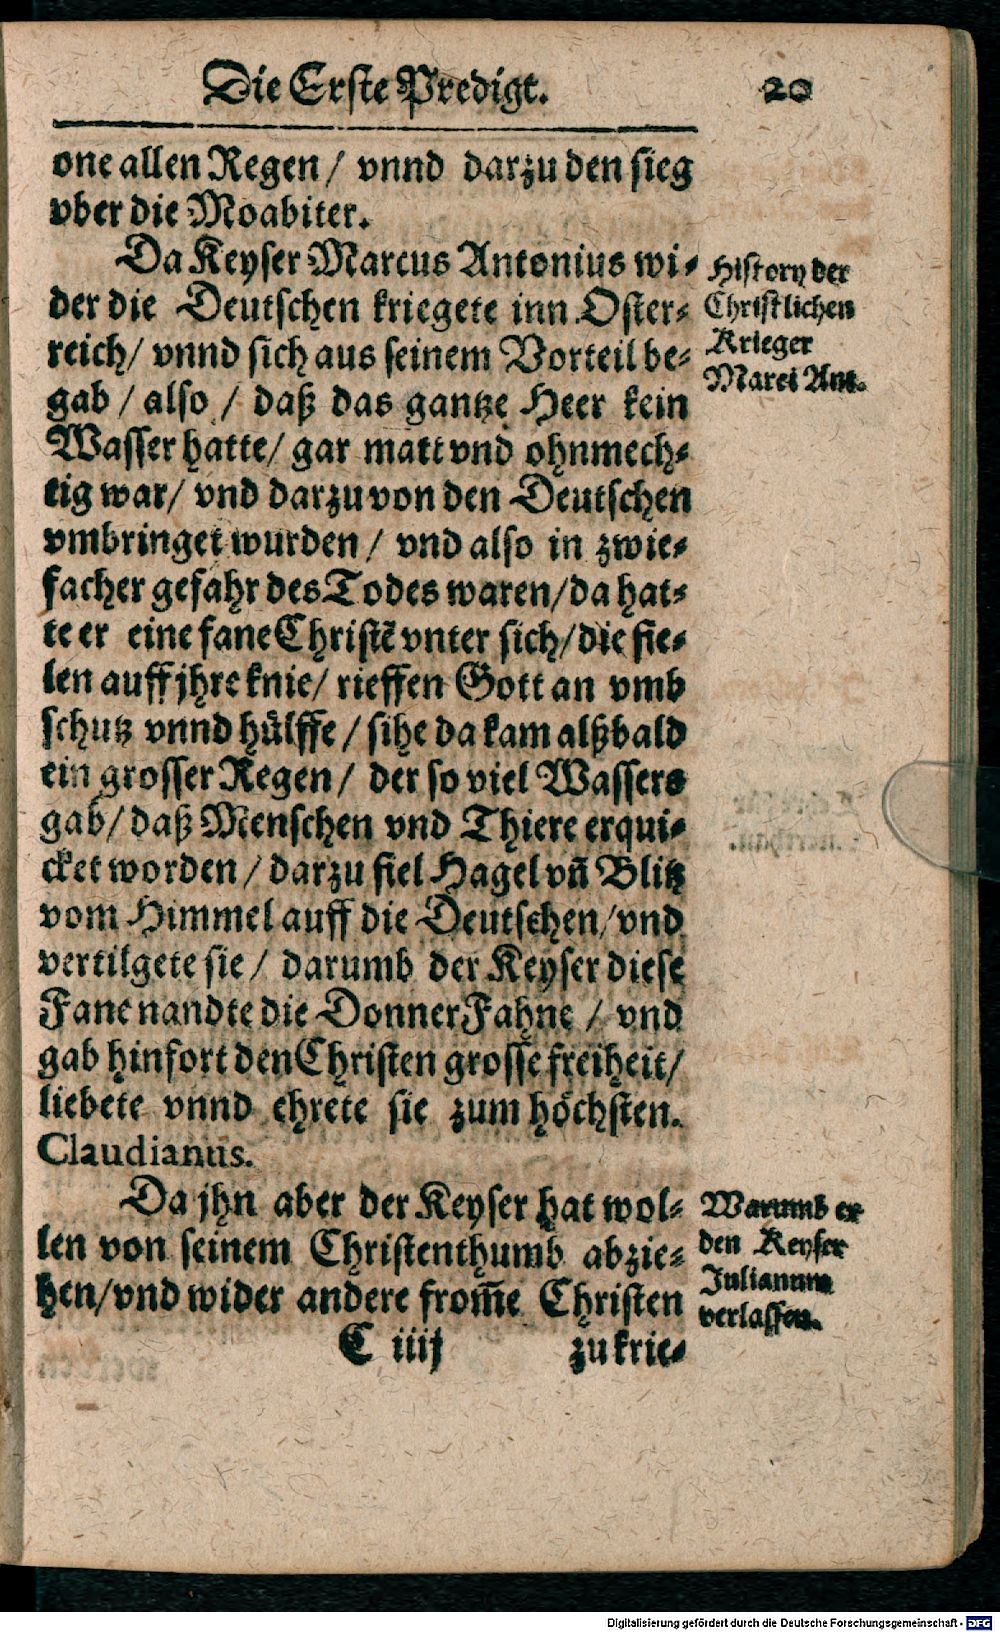 Die Erste Predigt. 20
one allen Regen / vnnd darzu den sieg
vber die Moabiter.
Da Keyser Marcus Antonius wi-
der die Deutschen kriegete inn Oster-
reich / vnnd sich aus seinem Vorteil be-
gab / also / daß das gantze Heer kein
Wasser hatte / gar matt vnd ohnmech-
tig war / vnd darzu von den Deutschen
vmbringet wurden / vnd also in zwie-
facher gefahr des Todes waren / da hat-
te er eine fane Christē vnter sich / die fie-
len auff jhre knie / rieffen Gott an vmb
schutz vnnd hülffe / sihe da kam altzbald
ein grosser Regen / der so viel Wassers
gab / daß Menschen vnd Thiere erqui-
cket worden / darzu fiel Hagel vñ Blitz
vom Himmel auff die Deutschen / vnd
vertilgete sie / darumb der Keyser diese
Fane nandte die DonnerFahne / vnd
gab hinfort den Christen grosse freiheit /
liebete vnnd ehrete sie zum höchsten.
Claudianus.
Da jhn aber der Keyser hat wol-
len von seinem Christenthumb abzie-
hen / vnd wider andere from̃e Christen
C iiij zu krie-
History der
Christlichen
Krieger
Marci Ant.
Warumb er
den Keyser
Julianum
verlassen.
Digitalisierung gefördert durch die Deutsche Forschungsgemeinschaft - DFG